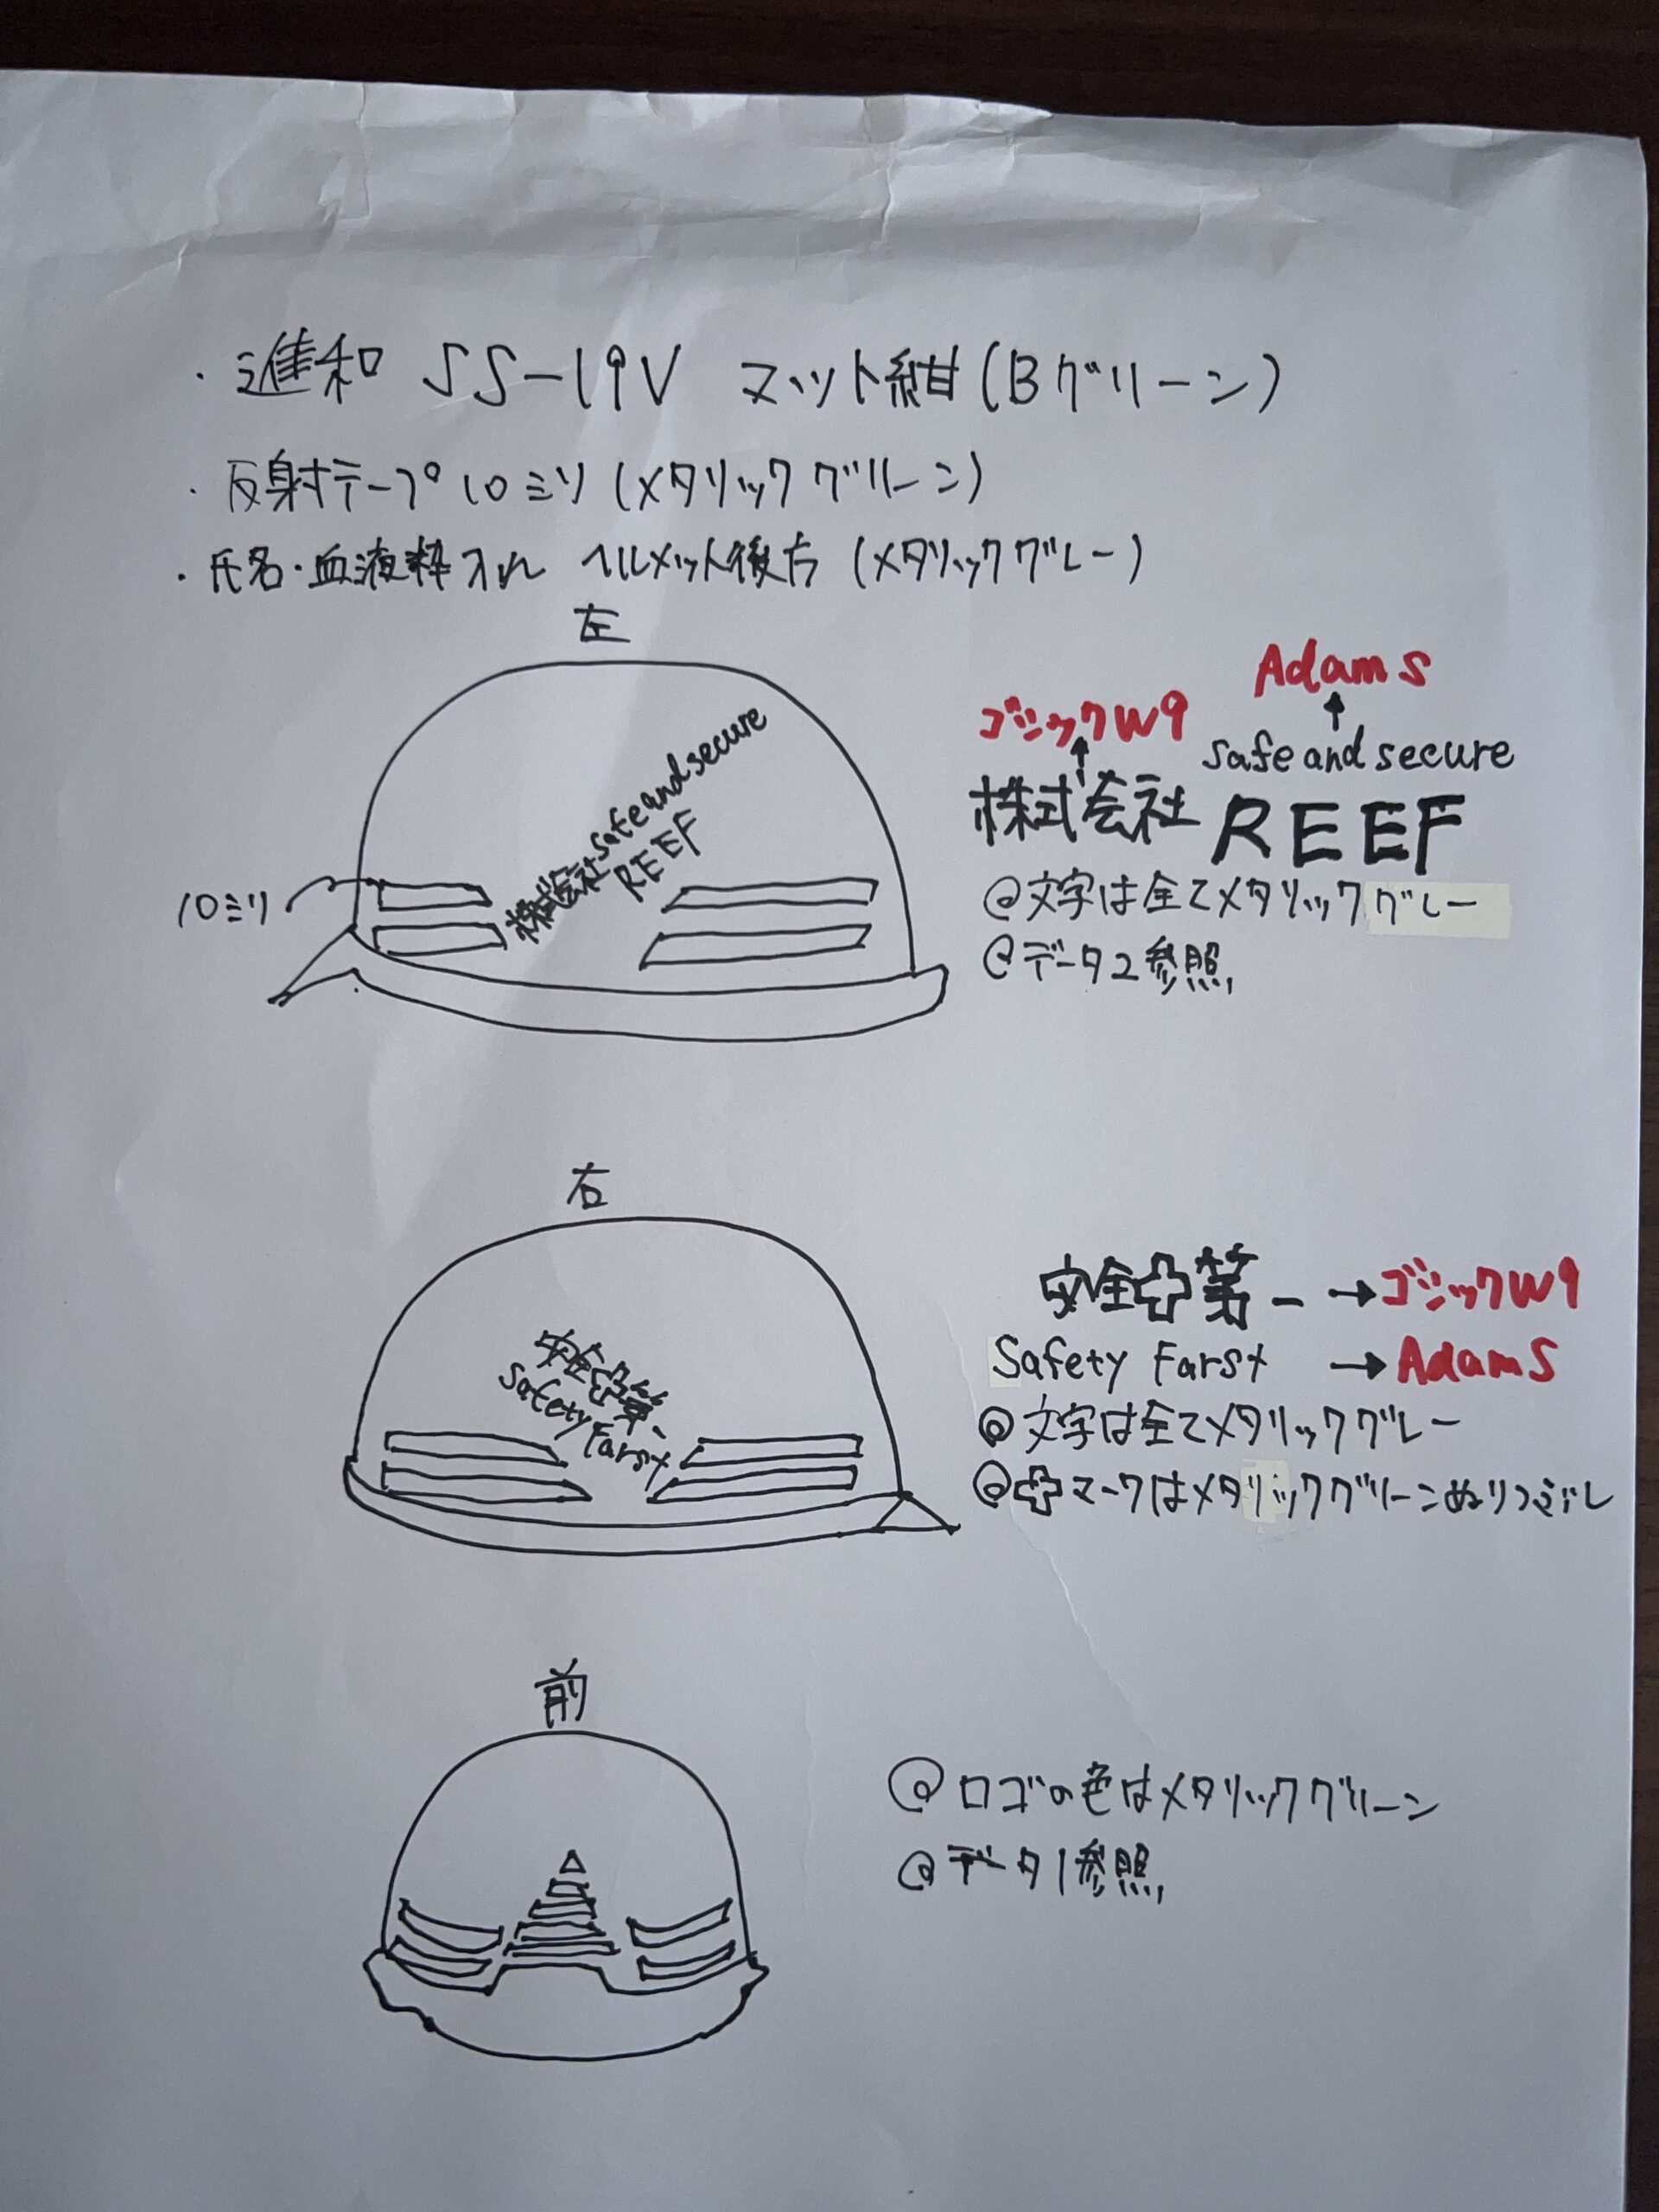 ・進和 SS-19V マット紺(Bグリーン)
・反射テープ10ミリ(メタリックグリーン)
・氏名・血液枠入れ ヘルメット後方(メタリックグレー)
左
10ミリ
株式会社 safe and secure
REEF
ゴシックW9
Adams
safe and secure
株式会社 REEF
@文字は全てメタリックグレー
@データ2参照
右
安全第一
Safety Farst
安全第一→ゴシックW9
Safety Farst →Adams
@文字は全てメタリックグレー
@マークはメタリックグリーンぬりつぶし
前
@ロゴの色はメタリックグリーン
@データ1参照